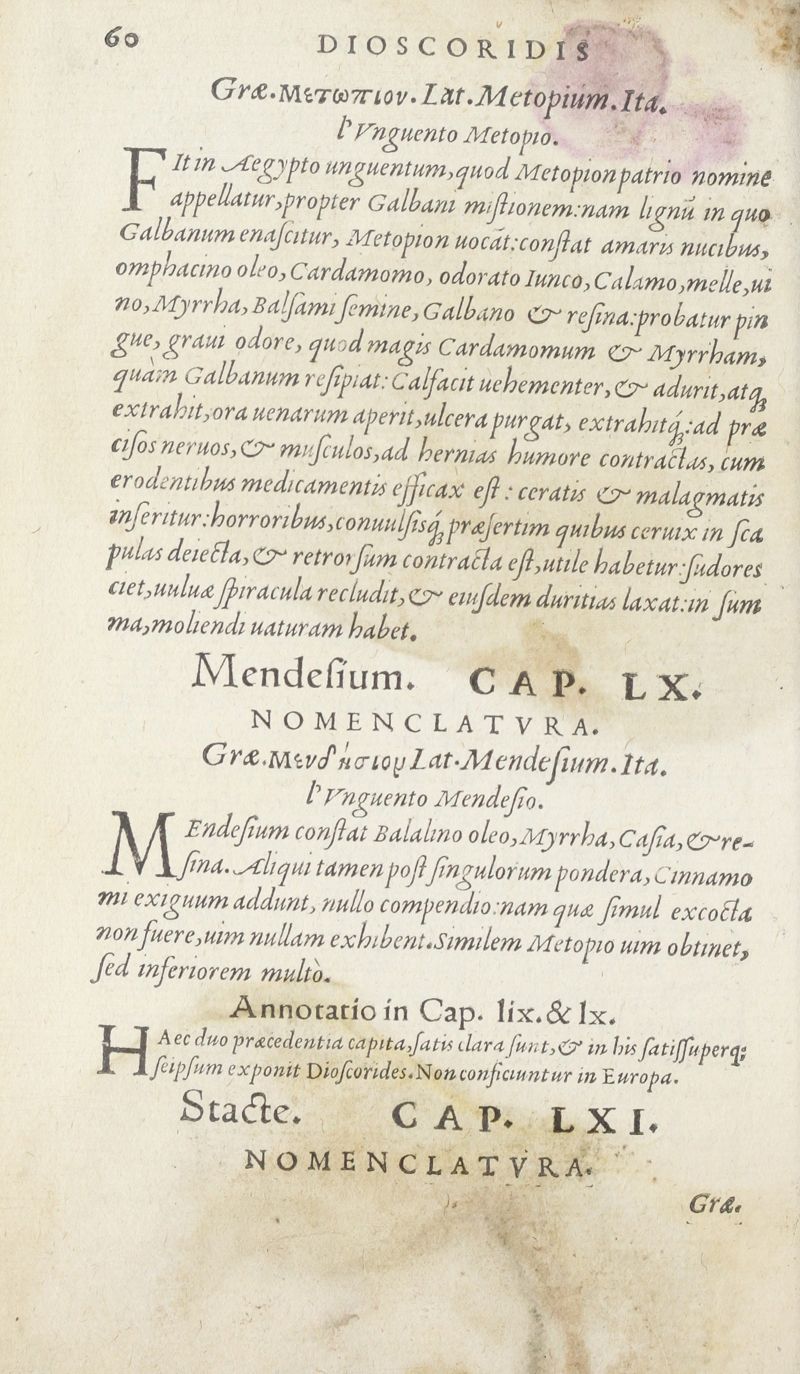 60 DIOSCORIDIS
Græ. Μετωπιον. Lat. Metopium. Ita.
l'Vnguento Metopio.
FIt in Aegypto unguentum, quod Metopion patrio nomine
appellatur, propter Galbani miſtionem: nam lignū in quo
Galbanum enaſcitur, Metopion uocāt: conſtat amaris nucibus,
omphacino oleo, Cardamomo, odorato Iunco, Calamo, melle, ui
no, Myrrha, Balſami ſemine, Galbano & reſina: probatur pin
gue, graui odore, quod magis Cardamomum & Myrrham,
quàm Galbanum reſipiat: Calfacit uehementer, & adurit, atq;
extrahit, ora uenarum aperit, ulcera purgat, extrahitq́;: ad præ
ciſos neruos, & muſculos, ad hernias humore contractas, cum
erodentibus medicamentis efficax eſt: ceratis & malagmatis
inſeritur: horroribus, conuulſisq́; præſertim quibus ceruix in ſca
pulas deiecta, & retrorſum contracta eſt, utile habetur: ſudores
ciet, uuluæ ſpiracula recludit, & eiuſdem duritias laxat: in ſum
ma, moliendi uaturam habet.
Mendeſium. CAP. LX.
NOMENCLATVRA.
Græ. Μενδήσιον Lat. Mendeſium. Ita.
l'Vnguento Mendeſio.
MEndeſium conſtat Balalino oleo, Myrrha, Caſia, & re-
ſina. Aliqui tamen poſt ſingulorum pondera, Cinnamo
mi exiguum addunt, nullo compendio: nam quæ ſimul excocta
non fuere, uim nullam exhibent. Similem Metopio uim obtinet,
ſed inferiorem multò.
Annotatio in Cap. lix. & lx.
HAec duo præcedentia capita, ſatis clara ſunt, & in his ſatiſſuperq;
ſeipſum exponit Dioſcorides. Non conficiuntur in Europa.
Stacte. CAP. LXI.
NOMENCLATVRA.
Græ.